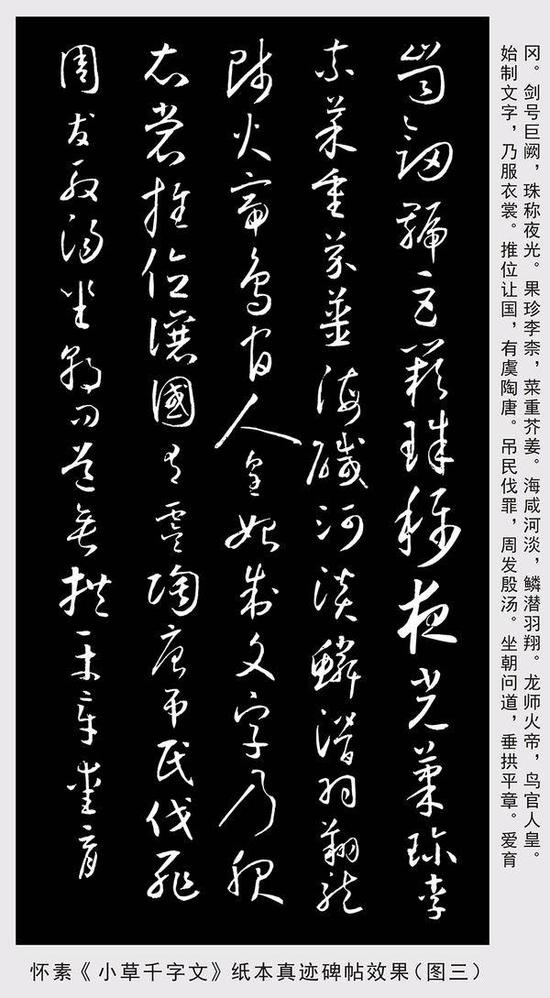 冈。剑号巨阙，珠称夜光。果珍李柰，菜重芥姜。海咸河淡，鳞潜羽翔。龙师火帝，鸟官人皇。
始制文字，乃服衣裳。推位让国，有虞陶唐。吊民伐罪，周发殷汤。坐朝问道，垂拱平章。爱育
崗劒號巨闕珠稱夜光菓珍李
柰菜重芥薑海鹹河淡鱗潛羽翔龍
師火帝鳥官人皇始制文字乃服
衣裳推位讓國有虞陶唐吊民伐罪
周發殷湯坐朝問道垂拱平章愛育
怀素《小草千字文》纸本真迹碑帖效果（图三）